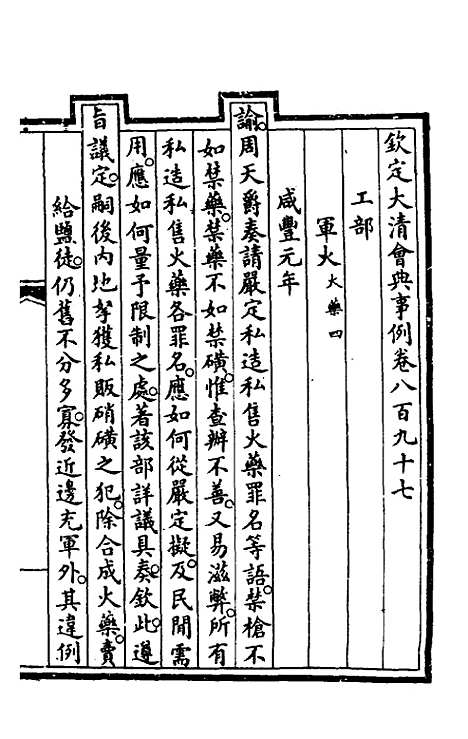 欽定大清會典事例卷八百九十七
工部
軍火火藥四
咸豐元年
諭。周天爵奏請嚴定私造私售火藥罪名等語。禁槍不
如禁藥。禁藥不如禁磺。惟查辦不善。又易滋弊。所有
私造私售火藥各罪名。應如何從嚴定擬。及民間需
用。應如何量予限制之處。著該部詳議具奏。欽此。遵
旨議定。嗣後內地拏獲私販硝磺之犯。除合成火藥賣
給鹽徒。仍舊不分多寡。發近邊充軍外。其違例